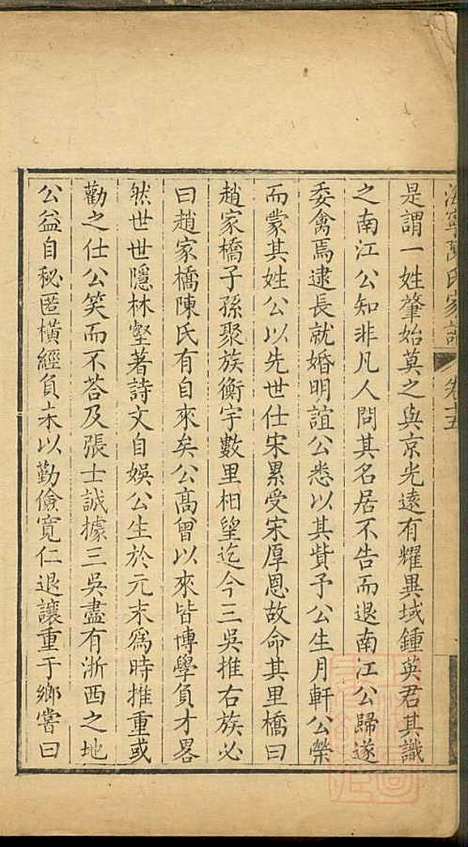 家
卷十五
是謂一姓肇始莫之與京光遠有耀異域鍾英君其識
之南江公知非凡人問其名居不告而退南江公歸遂
委禽焉逮長就婚明誼公悉以其貲予公生月軒公榮
而蒙其姓公以先世仕宋累受宋厚恩故命其里橋曰
趙家橋子孫聚族衡宇數里相望迄今三吳推右族必
曰趙家橋陳氏有自來矣公高曾以來皆博學負才畧
然世世隱林壑著詩文自娛公生於元末為時推重或
勸之仕公笑而不荅及張士誠據三吳盡有浙西之地
公益自秘匿橫經負耒以勤儉寬仁退讓重于鄉嘗曰